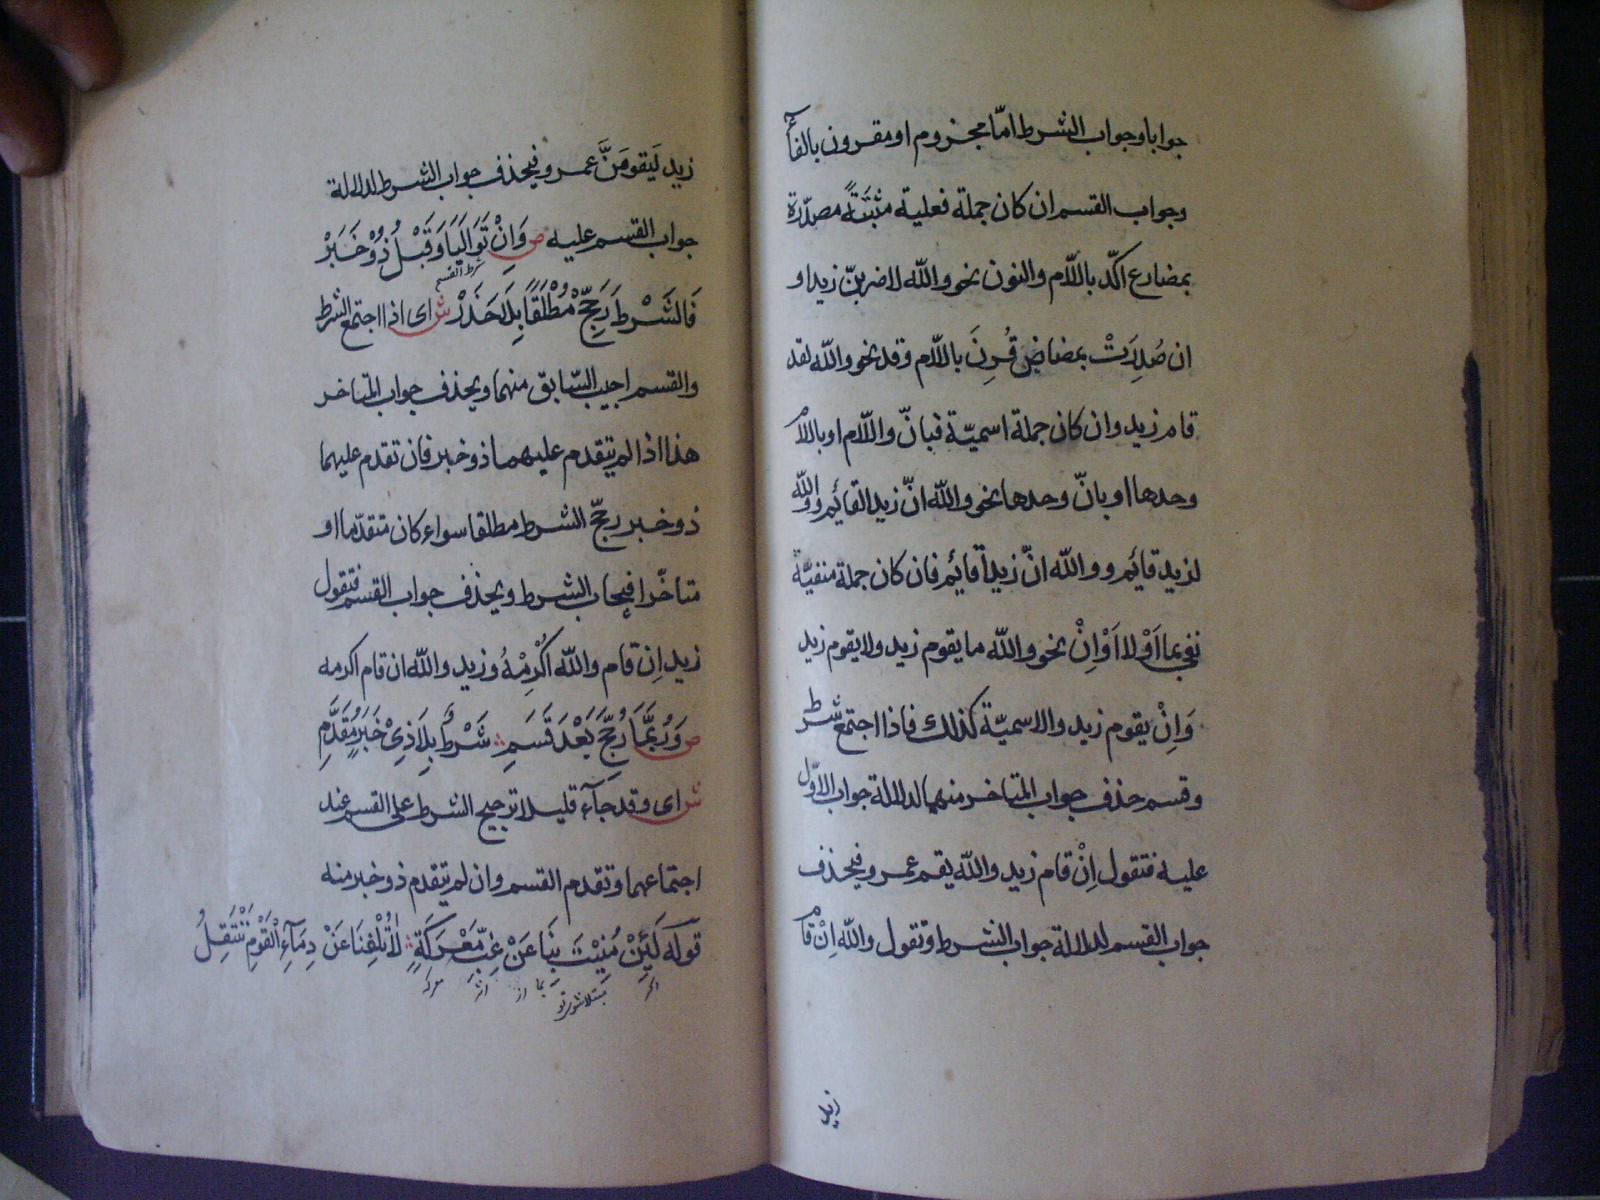 جوابا وجواب الشرط امّا مجزوم او مقرون بالفآء
وجواب القسم ان كان جملة فعلية مثبَتَةً مصدّرة
بمضارع اكّد باللّام والنون نحو واللّه لاضربنّ زيدا و
ان صُدِرَتْ بمضاض قُرِنَ باللّام وقد نحو واللّه لقد
قام زيد وان كان جملة اسميّة فبانّ واللّام او باللام
وحدها او بانّ وحدها نحو واللّه انّ زيدا لقائيم و واللّه
لزيد قائيم و واللّه انّ زيداً قائيم فان كان جملة منفيّة
نفي بما اَوْ لا اَوْ اِنْ نحو واللّه ما يقوم زيد ولا يقوم زيد
وَاِنْ يقوم زيد والاسميّة كذلك فاذا اجتمع شرط
وقسم حذف جواب المتاخر منهما لدلالة جواب الاوّل
عليه فتقول اِنْ قام زيد واللّه يقم عمرو فيحذف
جواب القسم لدلالة جواب الشرط وتقول واللّه اِنْ قام
زيد
زيد لَيَقومَنَّ عمرو فيحذف جواب الشرط لدلالة
جواب القسم عليه ص وَاِنْ تَوَالَيَا وَقَبْلُ ذُوْ خَبَرْ
شرط القسم
فَالشَّرْطَ رَجِّحْ مُطْلَقًا بِلَا حَذَرْ ش اى اذا اجتمع الشرط
والقسم اجيب السّابق منهما ويحذف جواب المتاخر
هذا اذا لم يتقدم عليهما ذو خبر فان تقدم عليهما
ذو خبر رجّح الشرط مطلقا سواء كان متقدّما او
متاخّرا فيجاب الشرط ويحذف جواب القسم فتقول
زيد اِنْ قام واللّه اُكْرِمْهُ وزيد واللّه ان قام اكرمه
ص وَرُبَّمَا رُجِّحَ بَعْدَ قَسَمِ شَرْطٌ بِلَا ذِىْ خَبَرٍ مُقَدَّمِ
ش اى وقد جآء قليلا ترجيح الشرط على القسم عند
اجتماعهما وتقدم القسم وان لم يتقدم ذو خبر منه
قوله لَئِنْ مُنِيْتَ بِنَا عَنْ غِبِّ مَعْرَكَةٍ لَاتُلْفِنَا عَنْ دِمَآءِ الْقَوْمِ نَنْتَفِلُ
اكر مبتلا شوى تو بما از اثر معركه